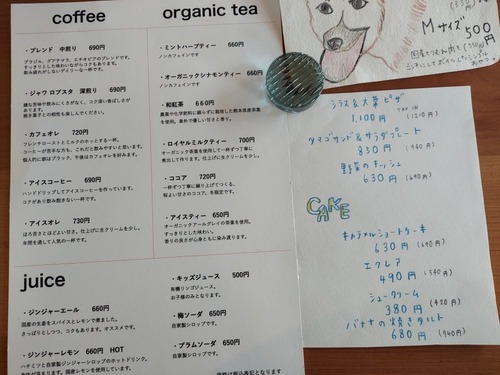 coffee
・ブレンド 中煎り 690円
ブラジル、グアテマラ、エチオピアのブレンドです。
すっきりとした味わいながらコクもあります。
飲み疲れがしないデイリーな一杯です。
・ジャワ ロブスタ 深煎り 690円
嫌な苦味や渋みにくさがなく、コク深い香ばしさが
あります。
焼き菓子との相性も楽しんください。
・カフェオレ 720円
フレンチローストとミルクのホッとする一杯。
コーヒーが苦手な方も、これだと飲みやすいと思います。
個人的に朝はブラック、午後はカフェオレが好みです。
・アイスコーヒー 690円
ハンドドリップしてアイスコーヒーを作っています。
コクがあり飲み飽きない一杯です。
・アイスオレ 730円
ほろ苦さとほどよい甘さ。仕上げに生クリームを少し。
年間を通して人気の一杯です。
organic tea
・ミントハーブティー 660円
ノンカフェインです
・オーガニックシナモンティー 660円
ノンカフェインです
・和紅茶 660円
農薬や化学肥料に頼らずに栽培した熊本県産茶葉
を使用。素朴で優しい甘さと香り。
・ロイヤルミルクティー 700円
オーガニック茶葉を使用して一杯ずつ丁寧に
煮出して作ります。仕上げに生クリームを少し。
・ココア 720円
一杯ずつ丁寧に練り上げてつくる、
程よい甘さのココア。冬限定です。
・アイスティー 650円
オーガニックアールグレイの茶葉を使用。
すっきりとした味わい。
香りの良さが心身ともに染み渡ります。
juice
・ジンジャーエール 660円
国産の生姜をスパイスとレモンで煮ました。
さっぱりとしつつ、コクもあります。オススメです。
・ジンジャーレモン 660円 HOT
ハチミツと自家製ジンジャーシロップのホットドリンク。
体温まります。国産レモンを使用しています。
・キッズジュース 500円
有機リンゴジュース。
お子様のみとなります。
・梅ソーダ 650円
自家製シロップです。
・プラムソーダ 650円
自家製シロップです。
価格は税込表記となります
Mサイズ 500
円
シラス&大葉ピザ
1,100円 TAX IN (1210円)
タマゴサンド&サラダプレート
850円
野菜のキッシュ
630円 (690円)
CAKE
キャラメルショートケーキ
630円 (690円)
エクレア
490円 (540円)
シュークリーム
380円 (420円)
バナナの焼きタルト
680円 (740円)